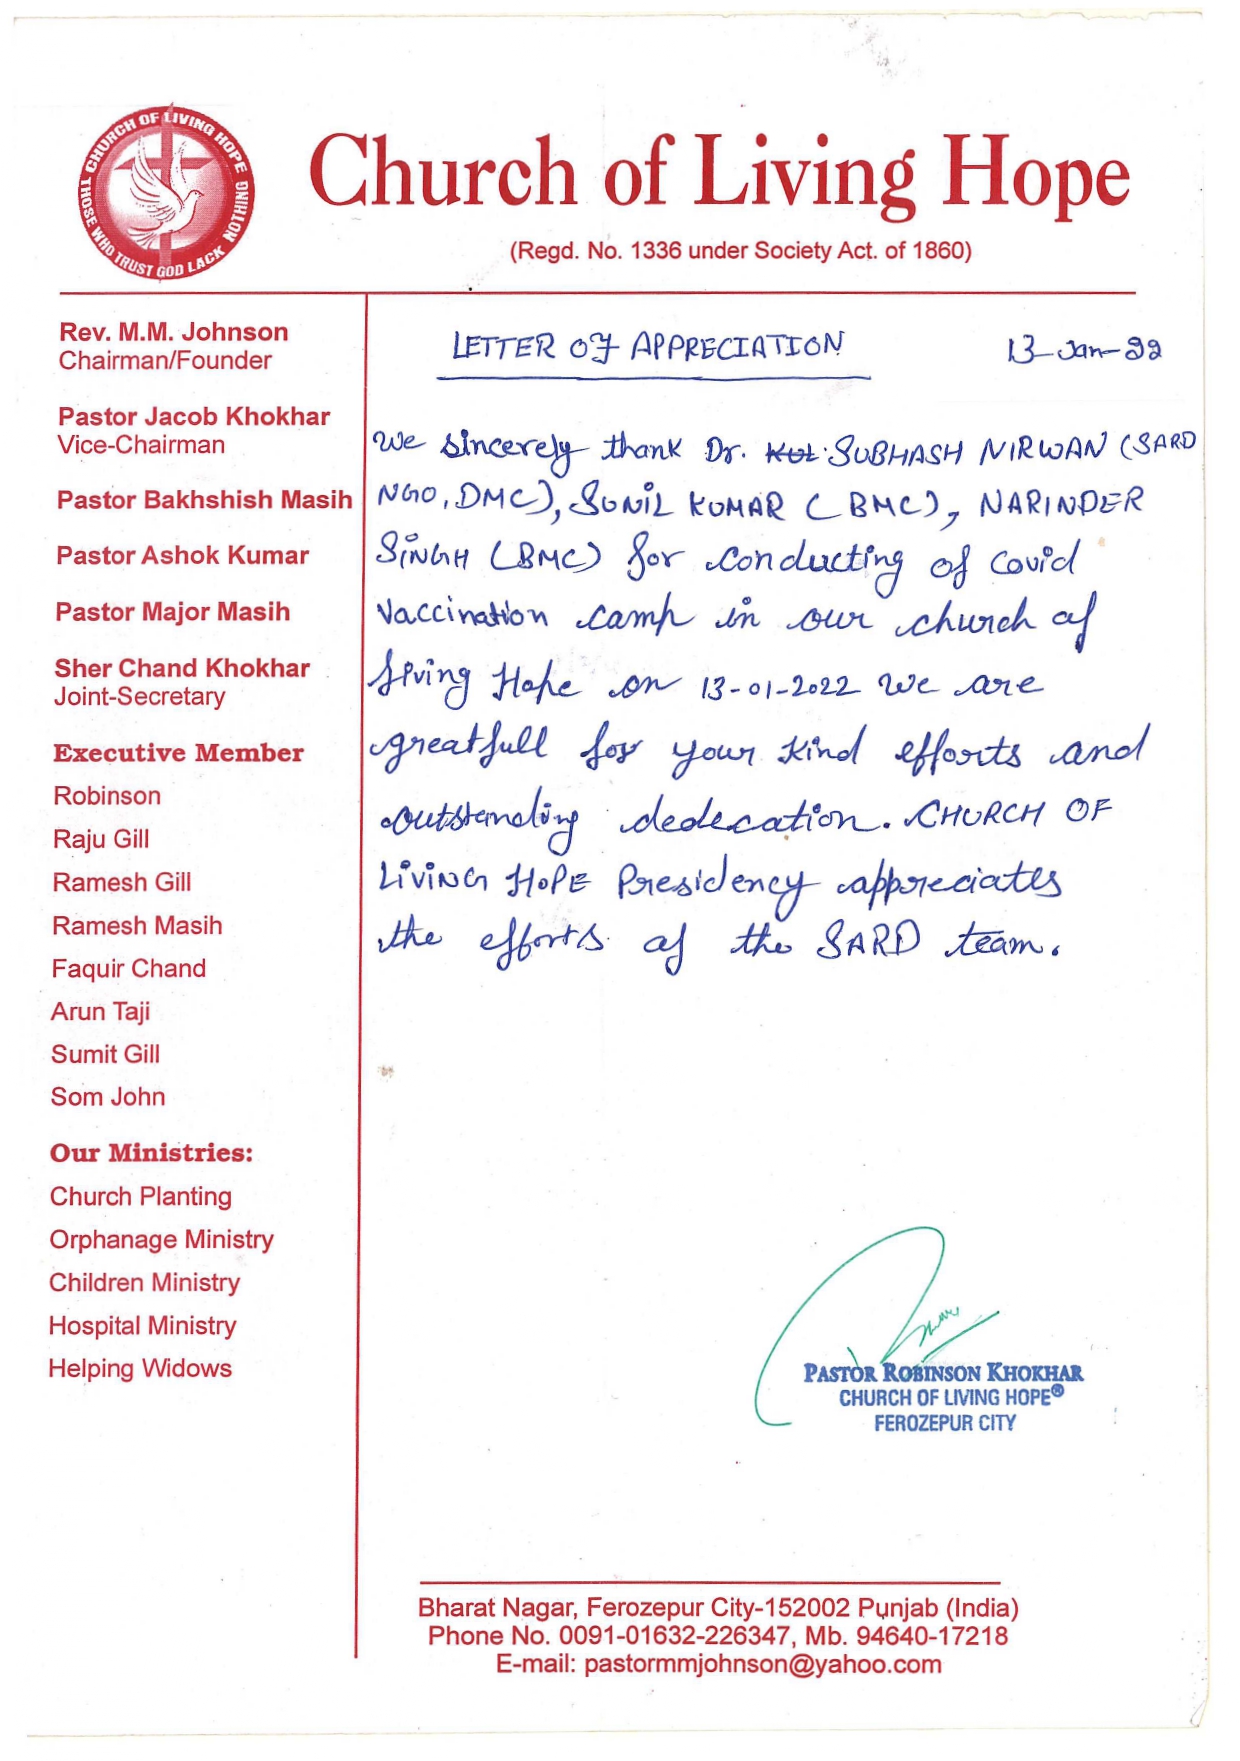 CHURCH OF LIVING HOPE
THOSE WHO TRUST GOD LACK NOTHING
Church of Living Hope
(Regd. No. 1336 under Society Act. of 1860)
Rev. M.M. Johnson
Chairman/Founder
Pastor Jacob Khokhar
Vice-Chairman
Pastor Bakhshish Masih
Pastor Ashok Kumar
Pastor Major Masih
Sher Chand Khokhar
Joint-Secretary
Executive Member
Robinson
Raju Gill
Ramesh Gill
Ramesh Masih
Faquir Chand
Arun Taji
Sumit Gill
Som John
Our Ministries:
Church Planting
Orphanage Ministry
Children Ministry
Hospital Ministry
Helping Widows
LETTER OF APPRECIATION
13-Jan-22
We sincerely thank Dr. SUBHASH NIRWAN (SARD
NGO, DMC), SUNIL KUMAR (BMC), NARINDER
SINGH (BMC) for conducting of Covid
Vaccination camp in our church of
living Hope on 13-01-2022 We are
greatfull for your kind efforts and
outstanding dedecation. CHURCH OF
LIVING HOPE Presidency appreciates
the efforts of the SARD team.
PASTOR ROBINSON KHOKHAR
CHURCH OF LIVING HOPE®
FEROZEPUR CITY
Bharat Nagar, Ferozepur City-152002 Punjab (India)
Phone No. 0091-01632-226347, Mb. 94640-17218
E-mail: pastormmjohnson@yahoo.com